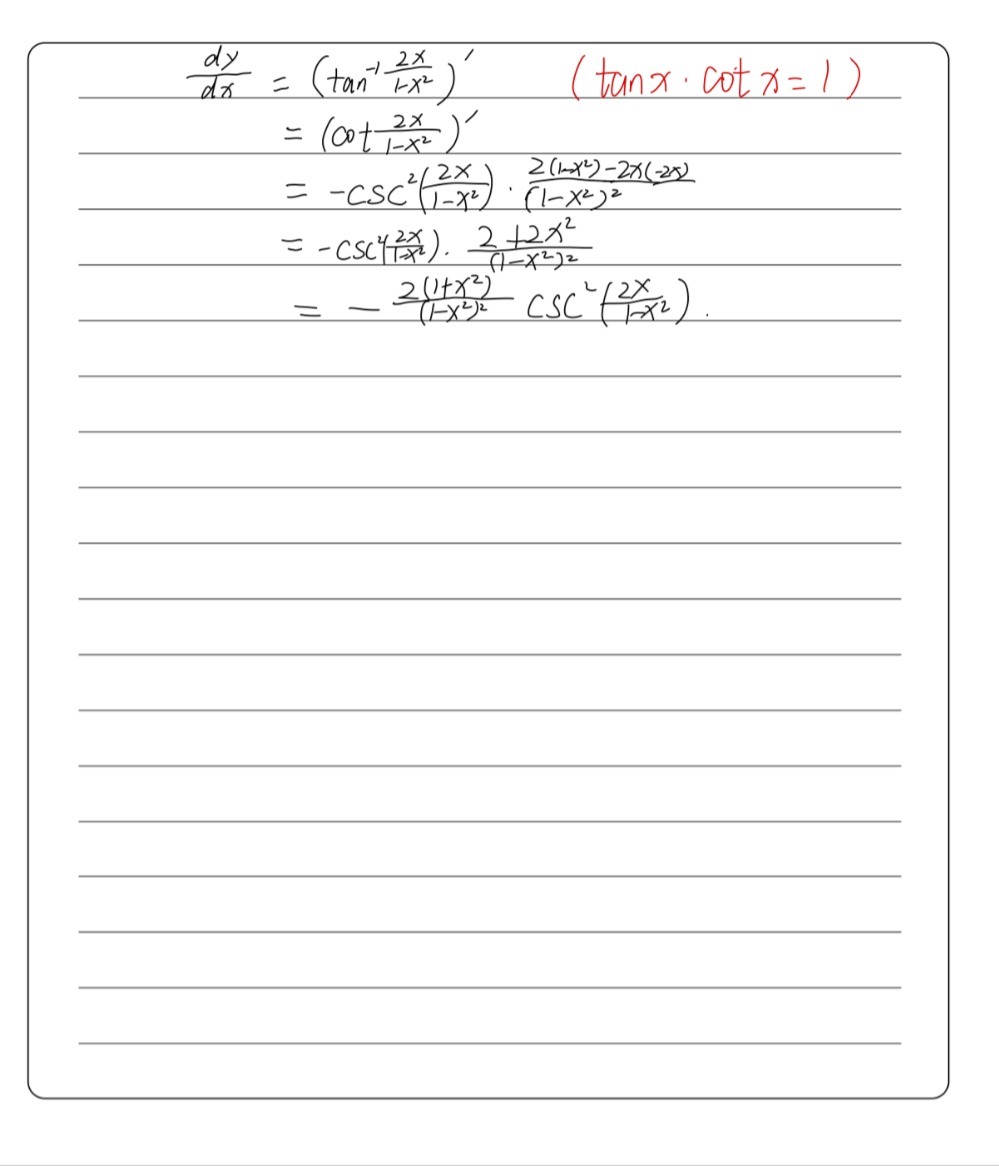 dy/dx = (tan⁻¹ 2x/(1-x²))′ (tanx · cot x = 1)
= (cot 2x/(1-x²))′
= -csc²(2x/(1-x²)) · (2(1-x²)-2x(-2x))/(1-x²)²
= -csc²(2x/(1-x²)) · (2+2x²)/(1-x²)²
= - 2(1+x²)/(1-x²)² csc²(2x/(1-x²)).